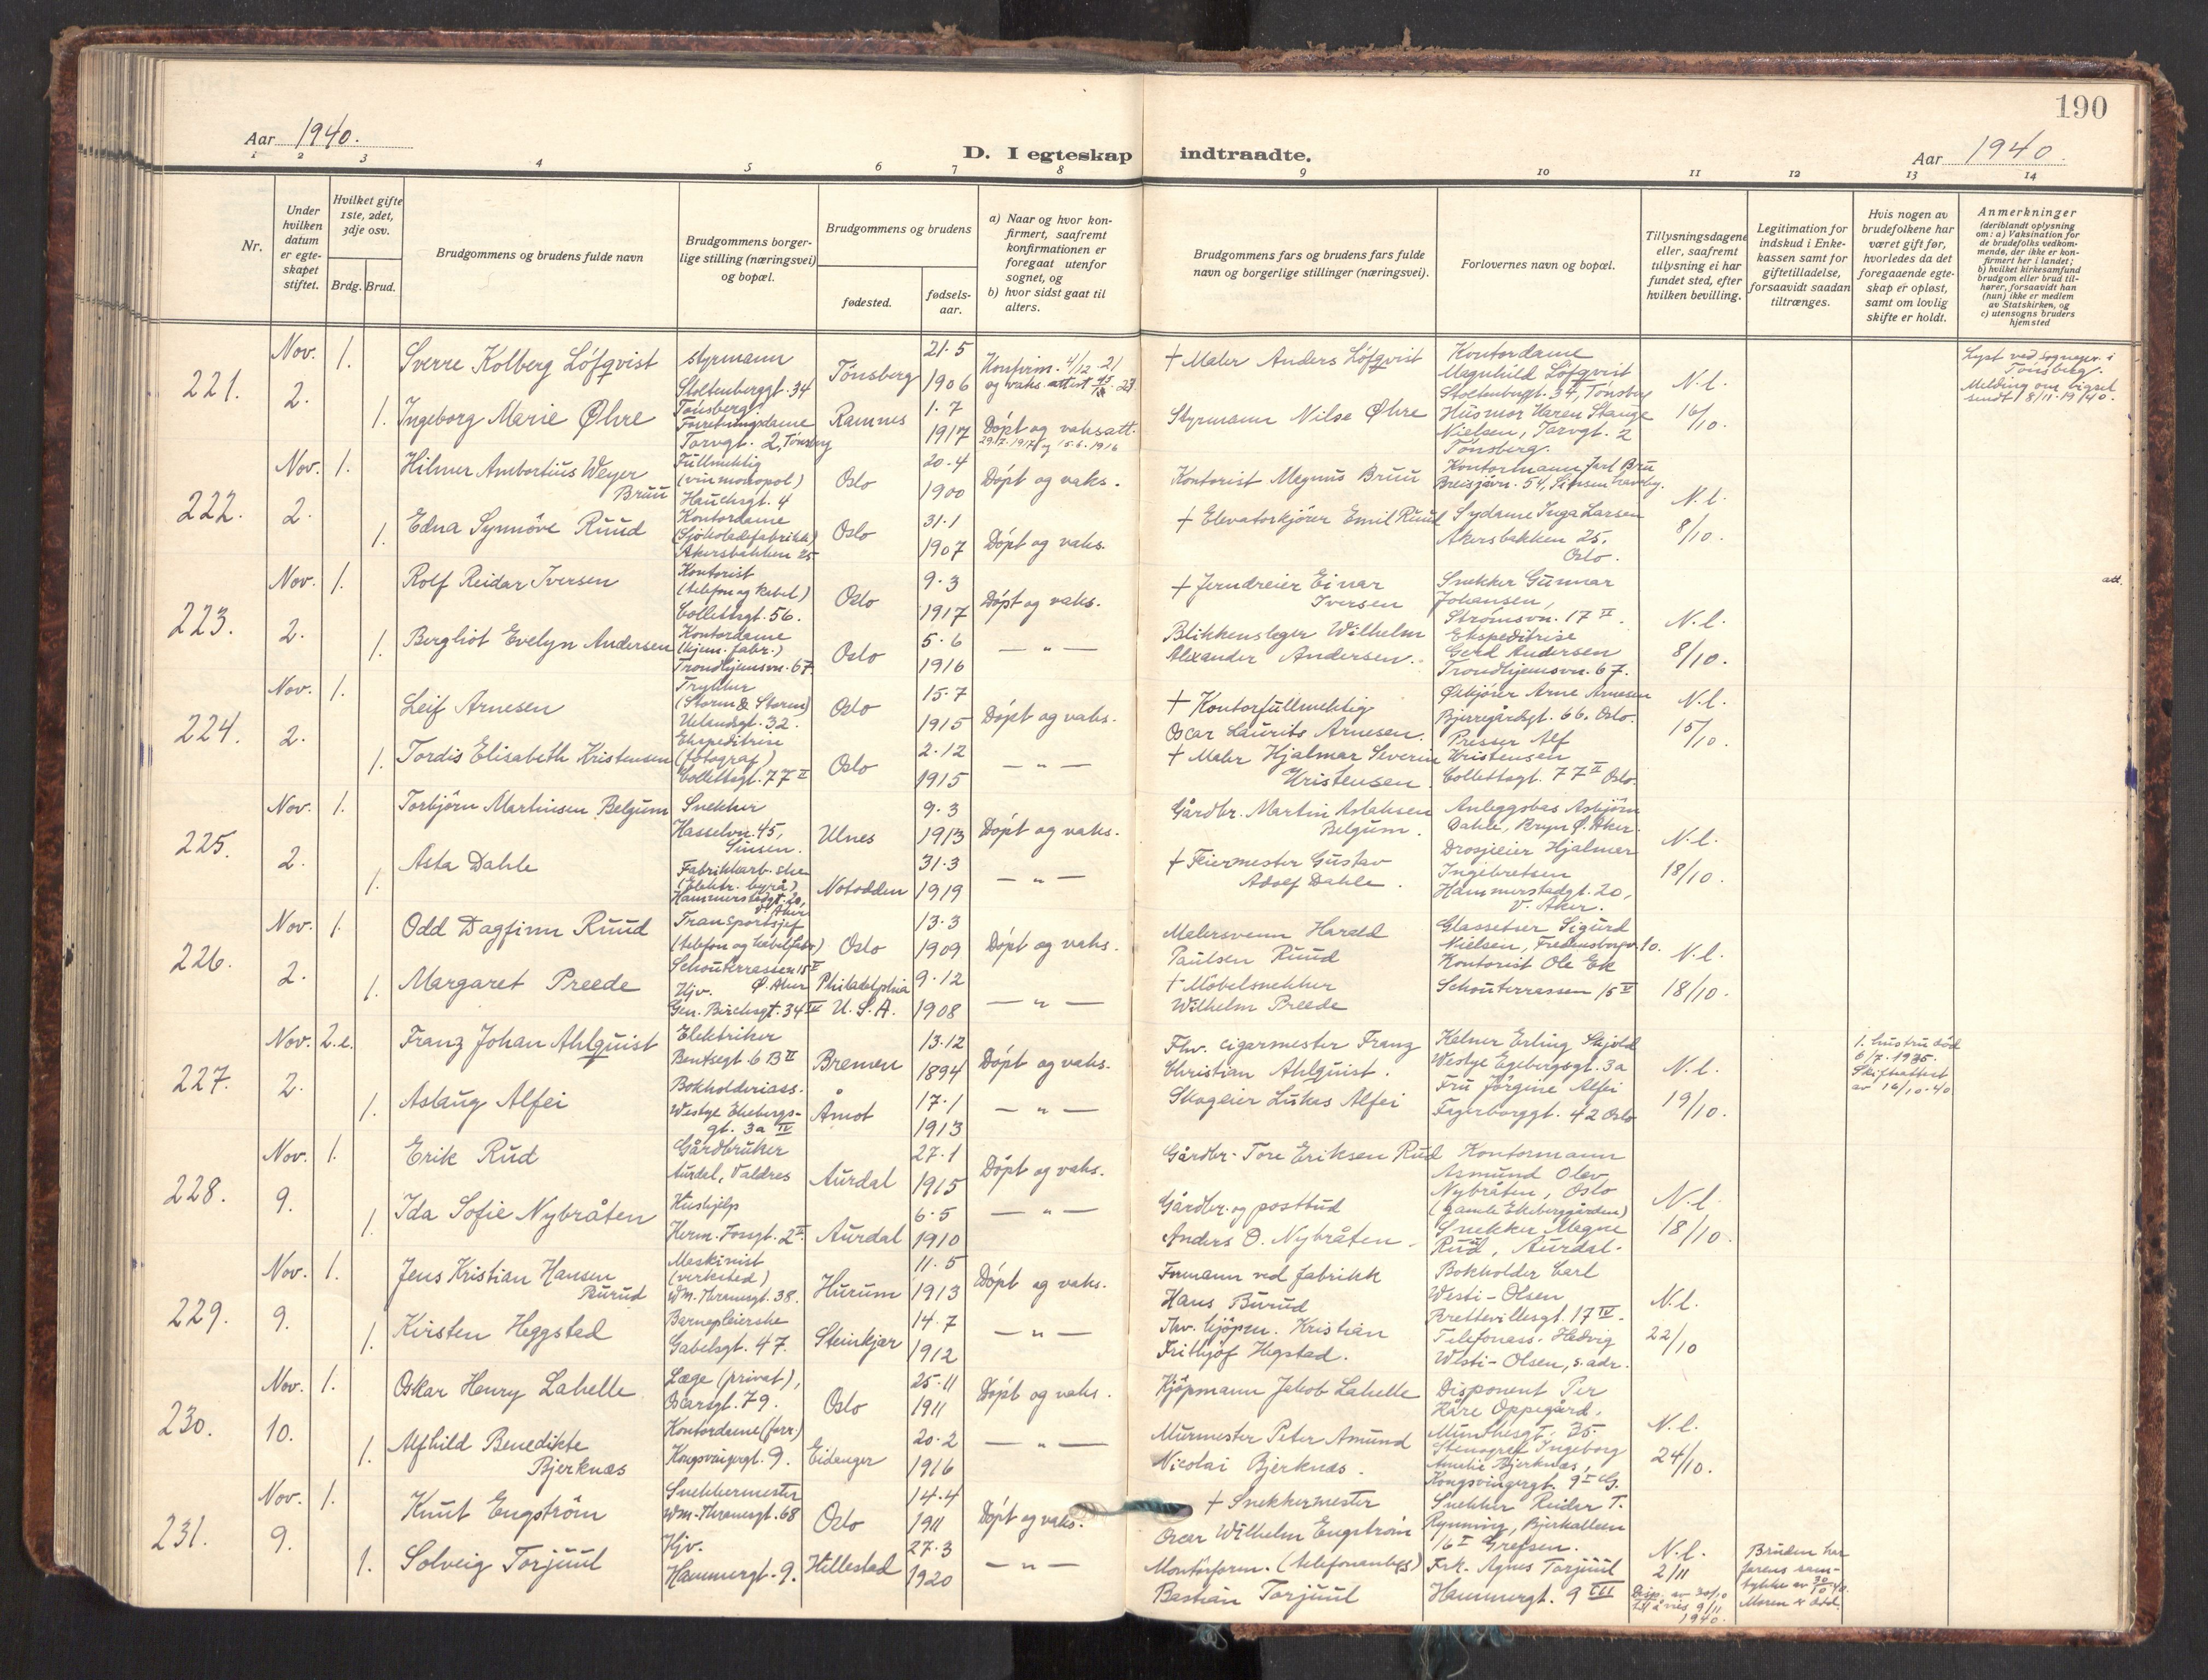 190
Aar 1940.
D. I egteskap indtraadte.
Aar 1940.
1 2 3 4 5 6 7 8 9 10 11 12 13 14
Nr.
Under hvilken datum er egteskapet stiftet.
Hvilket gifte 1ste, 2det, 3dje osv.
Brdg. Brud.
Brudgommens og brudens fulde navn
Brudgommens borgerlige stilling (næringsvei) og bopæl.
Brudgommens og brudens
fødested.
fødselsaar.
a) Naar og hvor konfirmert, saafremt konfirmationen er foregaat utenfor sognet, og
b) hvor sidst gaat til alters.
Brudgommens fars og brudens fars fulde navn og borgerlige stillinger (næringsvei).
Forlovernes navn og bopæl.
Tillysningsdagene eller, saafremt tillysning ei har fundet sted, efter hvilken bevilling.
Legitimation for indskud i Enkekassen samt for giftetilladelse, forsaavidt saadan tiltrænges.
Hvis nogen av brudefolkene har været gift før, hvorledes da det foregaaende egteskap er opløst, samt om lovlig skifte er holdt.
Anmerkninger
(deriblandt oplysning om: a) Vaksination for de brudefolks vedkommende, der ikke er konfirmert her i landet; b) hvilket kirkesamfund brudgom eller brud tilhører, forsaavidt han (hun) ikke er medlem av Statskirken, og c) utensogns bruders hjemsted
221. Nov. 2.
1. Sverre Kolberg Löfqvist
styrmann
Stoltenberggt. 34
Tönsberg.
Tönsberg
21.5
1906
Konfirm. 4/12-21
+ Maler Anders Löfqvist
Kontordame
Magnhild Löfqvist
Stoltenberggt. 34, Tönsberg
N.l.
16/10.
Lyst ved sognepr. i
Tönsberg.
Melding om vigsel
sendt 18/11-1940.
1. Ingeborg Marie Øhre
Forretningsdame
Torvgt. 2, Tönsberg
Ramnes
1.7
1917
Döpt og vaksatt.
Styrmann Nilse Øhre
Husmor Karen Stange
Nielsen, Torvgt. 2
Tönsberg.
222. Nov. 2.
1. Hilmer Ambortius Weyer
Bruu
Fullmektig
(vinmonopol)
Hauchsgt. 4
Oslo
20-4
1900
Döpt og vaks.
Kontorist Magnus Bruu
Breisjøvn. 54,
N.l.
8/10.
1. Edna Synnöve Ruud
Kontordame
(Sjokoladefabrikk)
Akersbakken 25
Oslo
31.1
1907
Döpt og vaks.
+ Elevatorkjörer Emil Ruud
Sydame Inga Larsen
Akersbakken 25.
Oslo.
223. Nov. 2.
1. Rolf Reidar Iversen
Kontorist
(telefon og kabel)
Collettsgt. 56.
Oslo
9.3
1917
Döpt og vaks.
+ Jerndreier Einar
Iversen
Snekker Gunnar
Johansen,
Strömsvn. 17 II.
N.l.
8/10.
att.
1. Bergliot Evelyn Andersen
Kontordame
(kjem. fabr.)
Trondhjemsvn. 67.
Oslo
5.6
1916
— „ —
Blikkenslager Wilhelm
Alexander Andersen.
Ekspeditrise
Gerd Andersen
Trondhjemsvn. 67.
224. Nov. 2.
1. Leif Arnesen
Trykker
(Storm & Storm)
Uelandsgt. 32.
Oslo
15.7
1915
Döpt og vaks.
+ Kontorfullmektig
Oscar Laurits Arnesen.
Arne Arnesen
Bjerregårdsgt. 66. Oslo.
N.l.
15/10.
1. Tordis Elisabeth Kristensen
Ekspeditrise
(fotograf)
Collettsgt. 77 II
Oslo
2.12
1915
— „ —
+ Maler Hjalmar Severin
Kristensen.
Presser Alf
Kristensen
Collettsgt. 77 II Oslo.
225. Nov. 2.
1. Torbjörn Martinsen Belgum
Snekker
Hasselvn. 45,
Sinsen.
Ulnes
9.3
1913
Döpt og vaks.
Gårdbr. Martin Aslaksen
Belgum.
Anleggsbas Asbjörn
Dahle, Bryn Ø. Aker.
N.l.
18/10.
1. Asta Dahle
Fabrikkarb.ske
(Elektr. byrå)
Hammerstadgt. 20,
V. Aker
Notodden
31.3
1919
— „ —
+ Feiermester Gustav
Adolf Dahle.
Drosjeeier Hjalmar
Ingebretsen
Hammerstadgt. 20,
V. Aker.
226. Nov. 2.
1. Odd Dagfinn Ruud
Transportsjef
(telefon og kabelfabr.)
Schouterrassen 15 V
Ø. Aker
Oslo
13.3
1909
Döpt og vaks.
Malersvenn Harald
Paulsen Ruud
Glassetser Sigurd
Nielsen, Fredensborgv. 10.
N.l.
18/10.
1. Margaret Preede
Hjv.
Gen. Birchsgt. 34 IV
Philadelphia
U.S.A.
9.12
1908
— „ —
+ Möbelsnekker
Wilhelm Preede
Kontorist Ole Ek
Schouterrassen 15 V
227. Nov. 2.
2.e. Franz Johan Ahlquist
Elektriker
Bentsegt 6 B II
Bremen
13.12
1894
Döpt og vaks.
Fhv. cigarmester Franz
Christian Ahlquist.
Kelner Erling Skjold
Westye Egebergsgt. 3a
N.l.
19/10.
1. hustru död
6/7.1935.
Skifteattest
av 16/10.40
1. Aslaug Alfei
Bokholderiass.
Westye Ekebergs-
gt. 3a IV
Åmot
17.1
1913
— „ —
Skogeier Lukas Alfei
Fru Jörgine Alfei
Fagerborggt. 42 Oslo
228. Nov. 9.
1. Erik Rud
Gårdbruker
Aurdal, Valdres
Aurdal
27.1
1915
Döpt og vaks.
Gårdbr. Tore Eriksen Rud
Kontormann
Asmund Olev
Nybråten, Oslo
(gamle Ekeberggården)
N.l.
18/10.
1. Ida Sofie Nybråten
Hushjelp
Herm. Fossgt. 2 II.
Aurdal
6.5
1910
— „ —
Gårdbr. og postbud
Anders O. Nybråten.
Snekker Magne
Rud, Aurdal.
229. Nov. 9.
1. Jens Kristian Hansen
Burud
Maskinist
(verksted)
Wm. Thranesgt. 38.
Hurum
11.5
1913
Döpt og vaks.
Formann ved fabrikk
Hans Burud
Bokholder Carl
Westi-Olsen
Brettevillesgt. 17 IV.
N.l.
22/10
1. Kirsten Heggstad
Barnepleierske
Gabelsgt. 47.
Steinkjær
14.7
1912
— „ —
Fhv. kjöpm. Kristian
Frithjof Hegstad.
Telefonass. Hedvig
Westi-Olsen, s. adr.
230. Nov. 10.
1. Oskar Henry Lahelle
Læge (privat),
Oscarsgt. 79.
Oslo
25.11
1911
Döpt og vaks.
Kjöpmann Jakob Lahelle
Disponent Per
Kåre Oppegård,
Munthesgt. 35.
N.l.
24/10.
1. Alfhild Benedikte
Bjerknæs
Kontordame (forr.)
Kongsvingergt. 9.
Eidanger
20.2
1916
— „ —
Murmester Peter Amund
Nicolai Bjerknæs.
Stenograf Ingeborg
Amelie Bjerknæs,
Kongsvingergt. 9
231. Nov. 9.
1. Knut Engström
Snekkermester
Wm. Thranesgt. 68
Oslo
14.4
1911
Döpt og vaks.
+ Snekkermester
Oscar Wilhelm Engström
Snekker Reidar T.
Rynning, Bjerkalleen
16 I Grefsen.
N.l.
2/11
1940.
Bruden har
farens sam-
tykke av 30/10 40.
Moren er död.
1. Solveig Torjuul
Hjv.
Hammergt. 9.
Hillestad
27.3
1920
— „ —
Montörform. (telefonanlegs)
Bastian Torjuul
Frk. Agnes Torjuul
Hammergt. 9 III